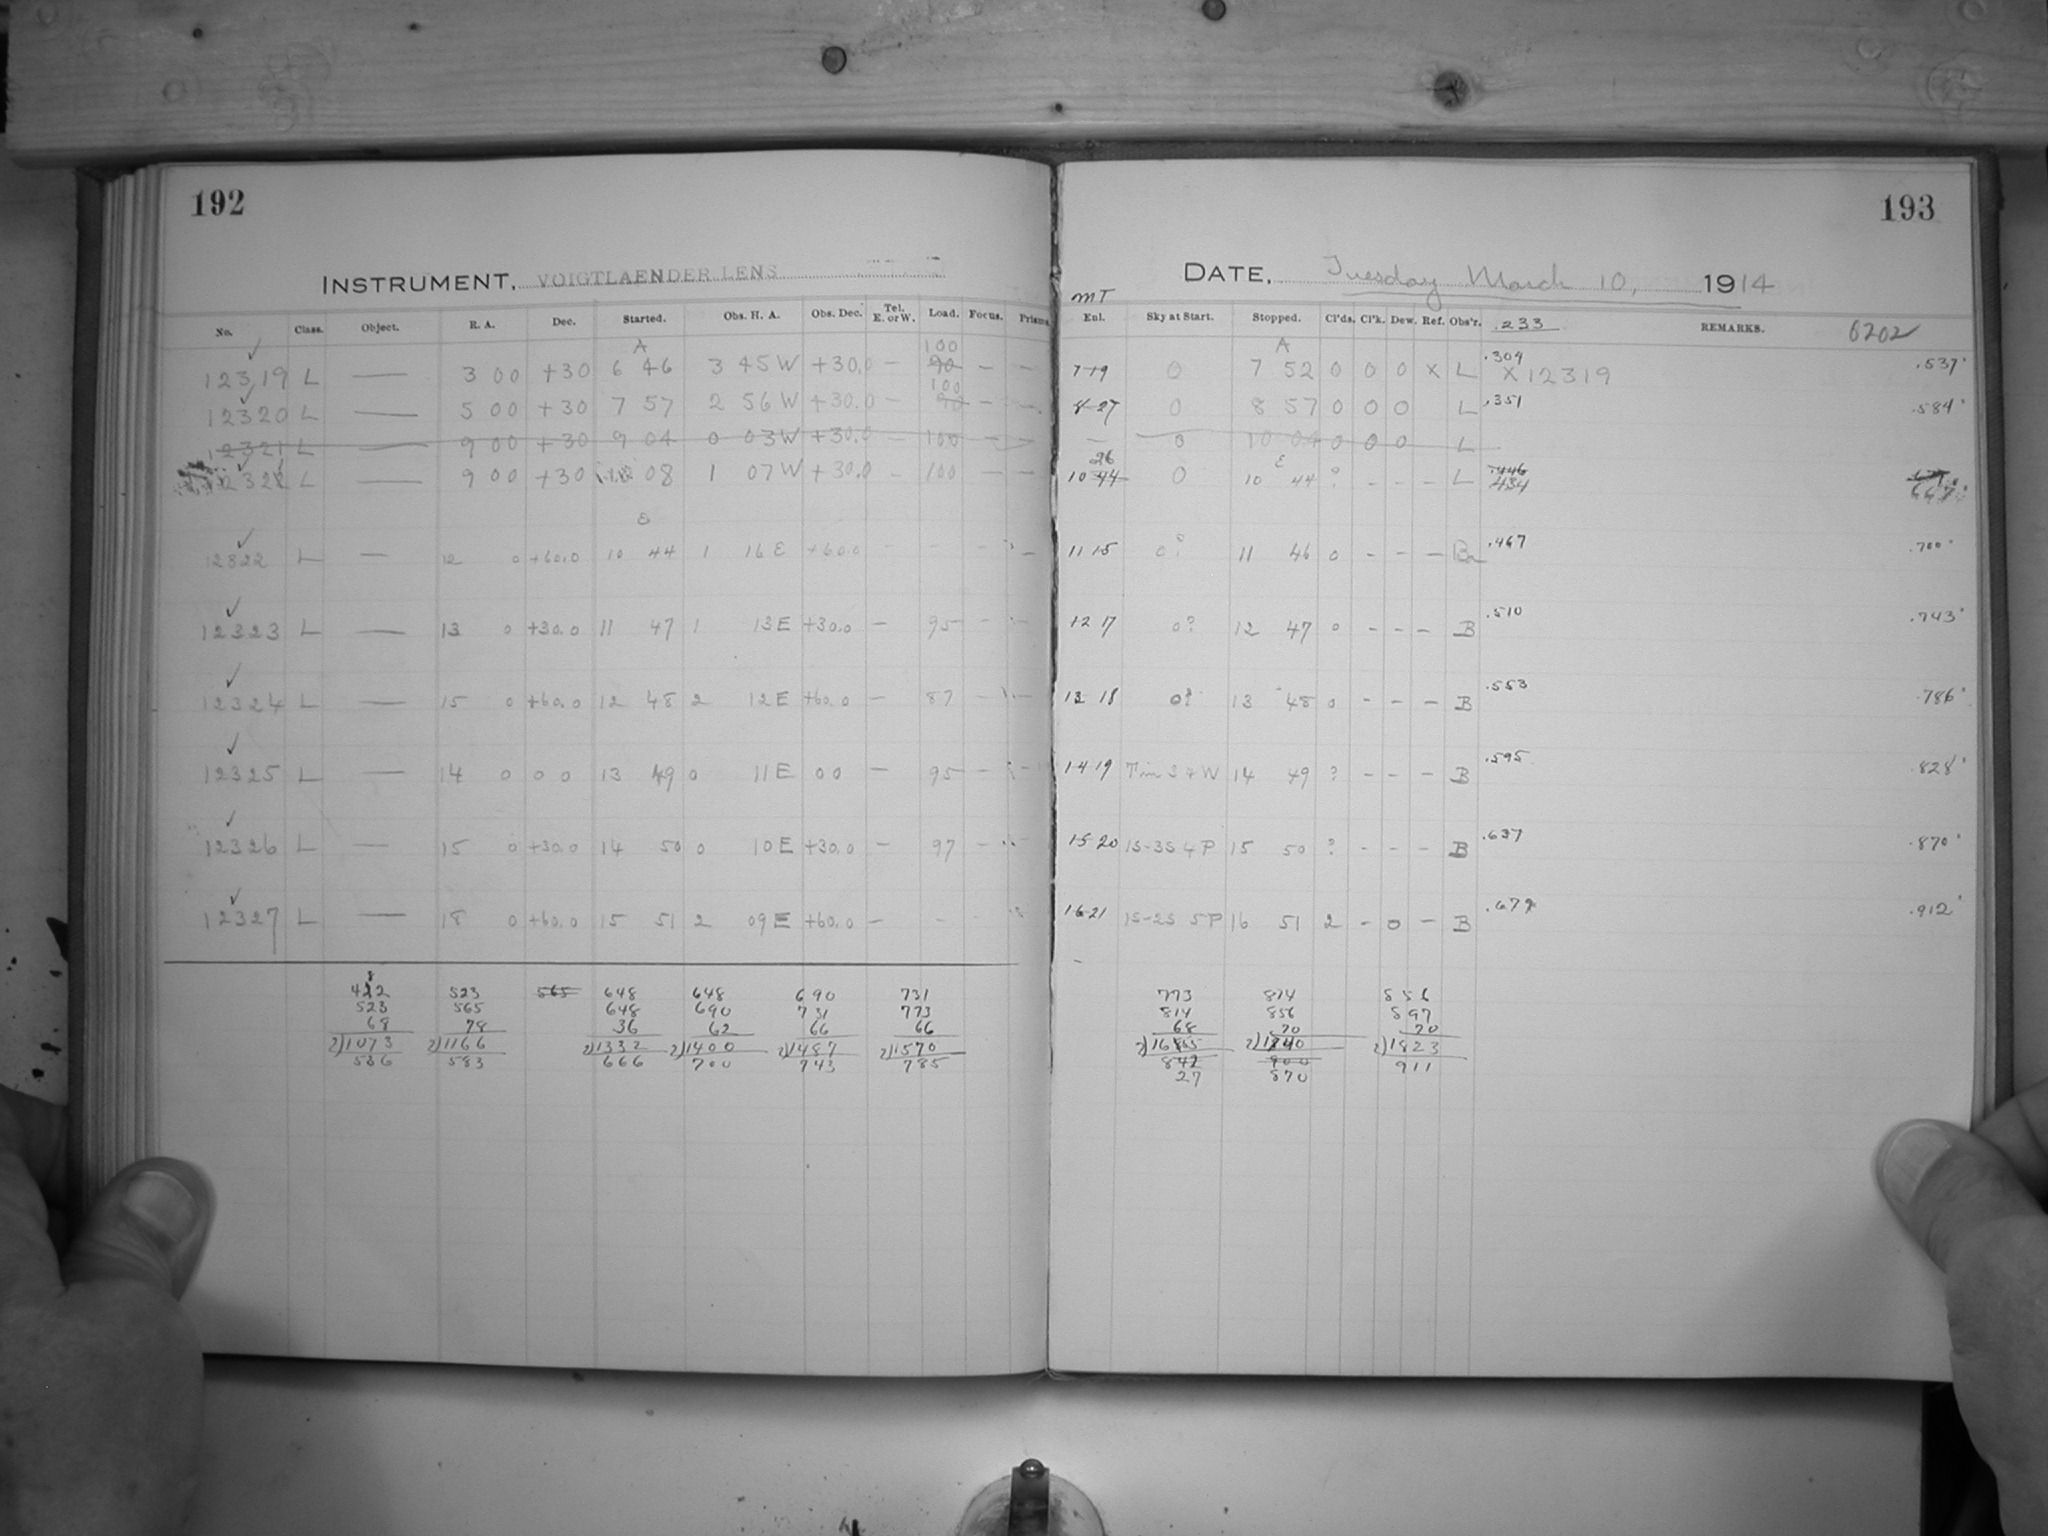 192
193
INSTRUMENT, VOIGTLAENDER LENS
DATE, Tuesday March 10, 1914
No. Class. Object. R. A. Dec. Started. Obs. H. A. Obs. Dec. Tel. E. or W. Load. Focus. Prisms.
MT
Enl. Sky at Start. Stopped. Cl'ds. Cl'k. Dew. Ref. Obs'r. .233 REMARKS. 6202
A 100
12319 L — 3 00 +30 6 46 3 45 W +30.0 — 90 — —
A
7 19 0 7 52 0 0 0 X L .304 X12319 .537
100
12320 L — 5 00 +30 7 57 2 56 W +30.0 — 90 — —
8 27 0 8 57 0 0 0 L .351 .584
12321 L — 9 00 +30 9 04 0 03 W +30.0 — 100 — —
— 0 10 04 0 0 0 L
12322 L — 9 00 +30 08 1 07 W +30.0 100 — —
26 E
10 44 0 10 44 ? - - - L .446 434 667
E
12822 L — 12 0 +60.0 10 44 1 16 E +60.0 - - - - -
11 15 0? 11 46 0 - - - Ba .467 .700
12323 L — 13 0 +30.0 11 47 1 13 E +30.0 — 95 - -
12 17 0? 12 47 0 - - - B .510 .743
12324 L — 15 0 +60.0 12 48 2 12 E +60.0 — 87 - -
13 18 0? 13 48 0 - - - B .553 .786
12325 L — 14 0 0 0 13 49 0 11 E 0 0 — 95 - -
14 19 14 49 ? - - - B .595 .828
12326 L — 15 0 +30.0 14 50 0 10 E +30.0 — 97 -
15 20 1S-3S 4P 15 50 ? - - - B .637 .870
12327 L — 18 0 +60.0 15 51 2 09 E +60.0 — -
16 21 1S-2S 5P 16 51 2 - 0 - B .679 .912
422 523 565 648 648 690 731
523 565 648 690 731 773
68 78 36 62 66 66
2)1073 2)1166 2)1332 2)1400 2)1487 2)1570
536 583 666 700 743 785
773 814 856
814 856 897
68 70 70
2)1655 2)1740 2)1823
842 900 911
27 870